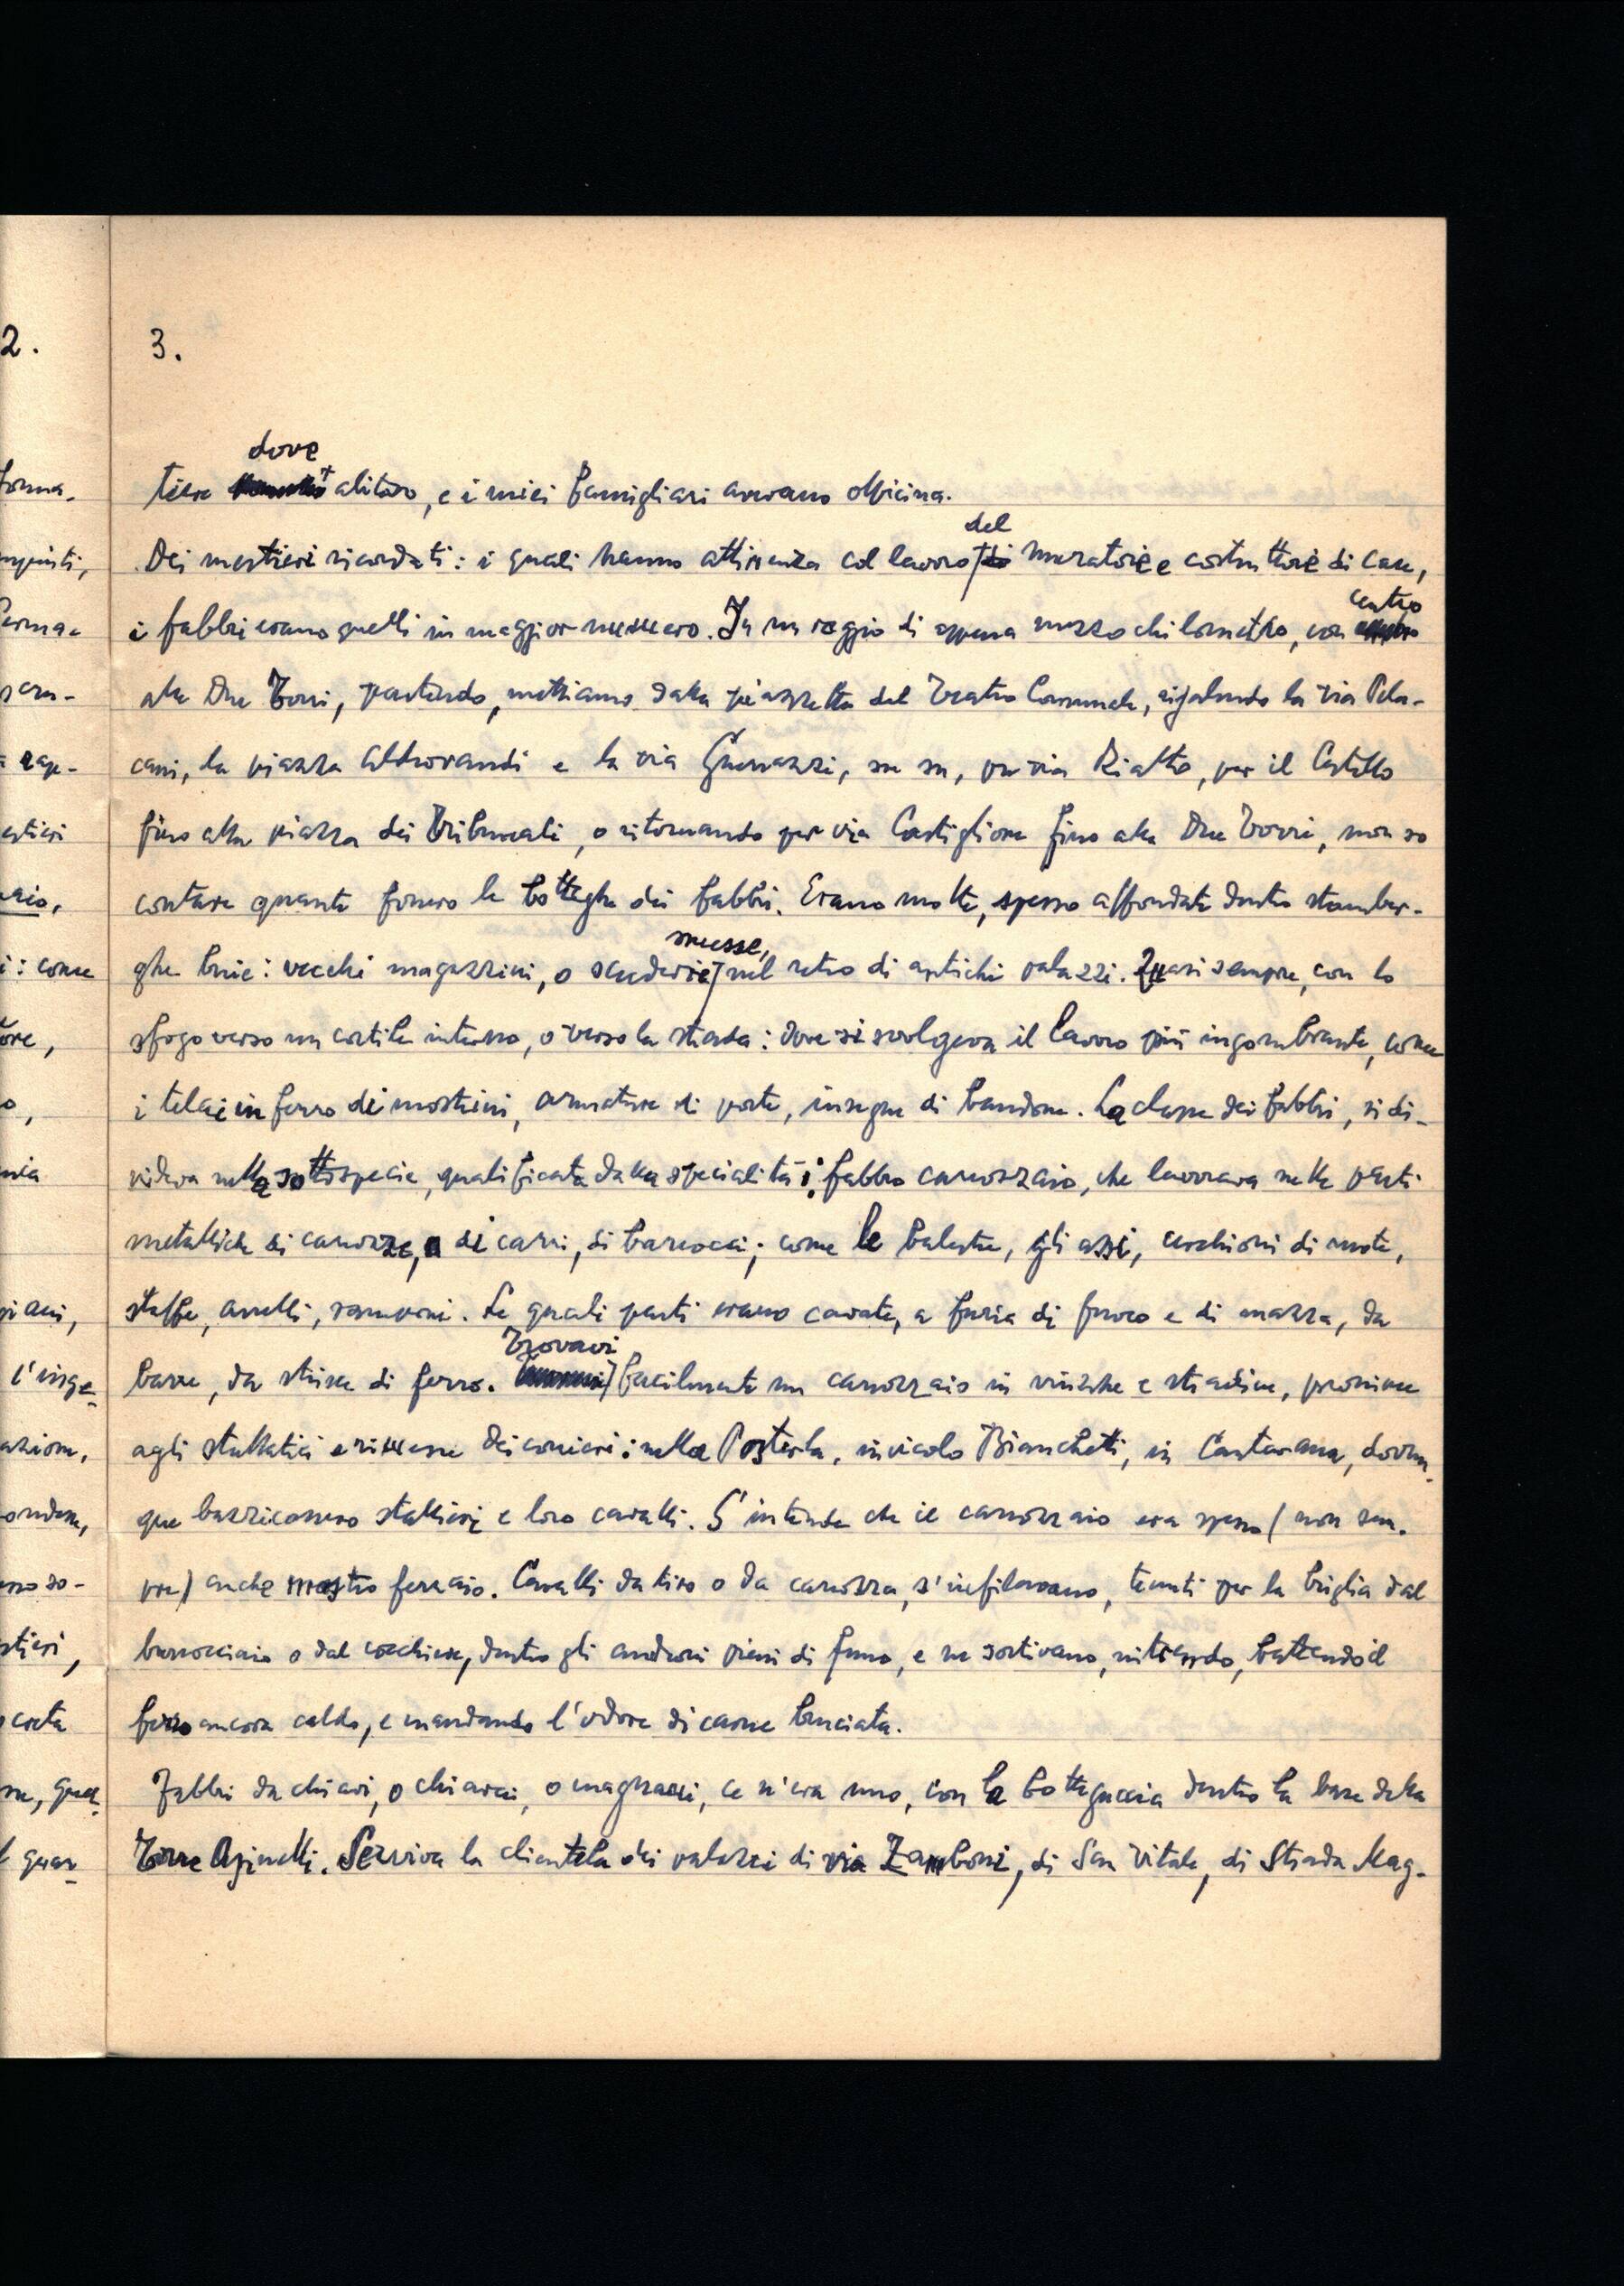 2.
3.
dove
tiere abitavo, e i miei famigliari avevano officina.
del
Dei mestieri ricordati: i quali hanno attinenza col lavoro di muratore e costruttore di case,
centro
i fabbri erano quelli in maggior numero. In un raggio di appena mezzo chilometro, con
alle Due Torri, partendo, mettiamo dalla piazzetta del Teatro Comunale, rigalendo la via Pela-
cani, la piazza Aldrovandi e la via Guerrazzi, su su, per via Rialto, per il Castello
fino alla piazza dei Tribunali, o ritornando per via Castiglione fino alle Due Torri, non so
contare quante fossero le botteghe dei fabbri. Erano molte, spesso affondate dentro stamber-
smesse,
ghe buie: vecchi magazzini, o scuderie nel retro di antichi palazzi. Quasi sempre, con lo
sfogo verso un cortile interno, o verso la strada: dove si svolgeva il lavoro più ingombrante, come
i telai in ferro di mostrini, armature di porte, insegne di bandone. La classe dei fabbri, si di-
videva nella sottospecie, qualificata dalla specialità: fabbro carrozzaio, che lavorava nelle parti
metalliche di carrozze, di carri, di barrocci; come le balestre, gli assi, cerchioni di ruote,
staffe, anelli, ramponi. Le quali parti erano cavate, a furia di fuoco e di mazza, da
Trovavi
barre, da strisce di ferro. facilmente un carrozzaio in viuzze e stradine, prossime
agli stallatici e rimesse dei corrieri: nella Posterla, in vicolo Bianchetti, in Cartarana, dovun-
que bazzicassero stallieri e loro cavalli. S'intende che il carrozzaio era spesso (non sem-
pre) anche mastro ferraio. Cavalli da tiro o da carrozza, s'infilavano, tenuti per la briglia dal
barrocciaio o dal cocchiere, dentro gli androni pieni di fumo, e ne sortivano, nitrendo, battendo il
ferro ancora caldo, e mandando l'odore di carne bruciata.
Fabbri da chiavi, o chiavai, o magnani, ce n'era uno, con la botteguccia dentro la base della
Torre Asinelli. Serviva la clientela dei palazzi di via Zamboni, di San Vitale, di Strada Mag-